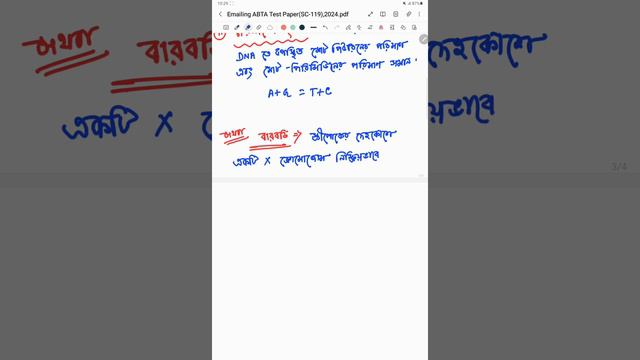 10:29
81%
Emailing ABTA Test Paper(SC-119),2024.pdf
DNA তে উপস্থিত মোট পিউরিনের পরিমাণ
এবং মোট -পিরিমিডিনের পরিমাণ সমান।
A+G = T+C
অথবা বারবডি ⇒ স্ত্রীলোকের দেহকোশে
একটি X ক্রোমোজোম নিষ্ক্রিয়ভাবে
অথবা
বারব
দেহকোশে
একটি X
য়ভাবে
3/4